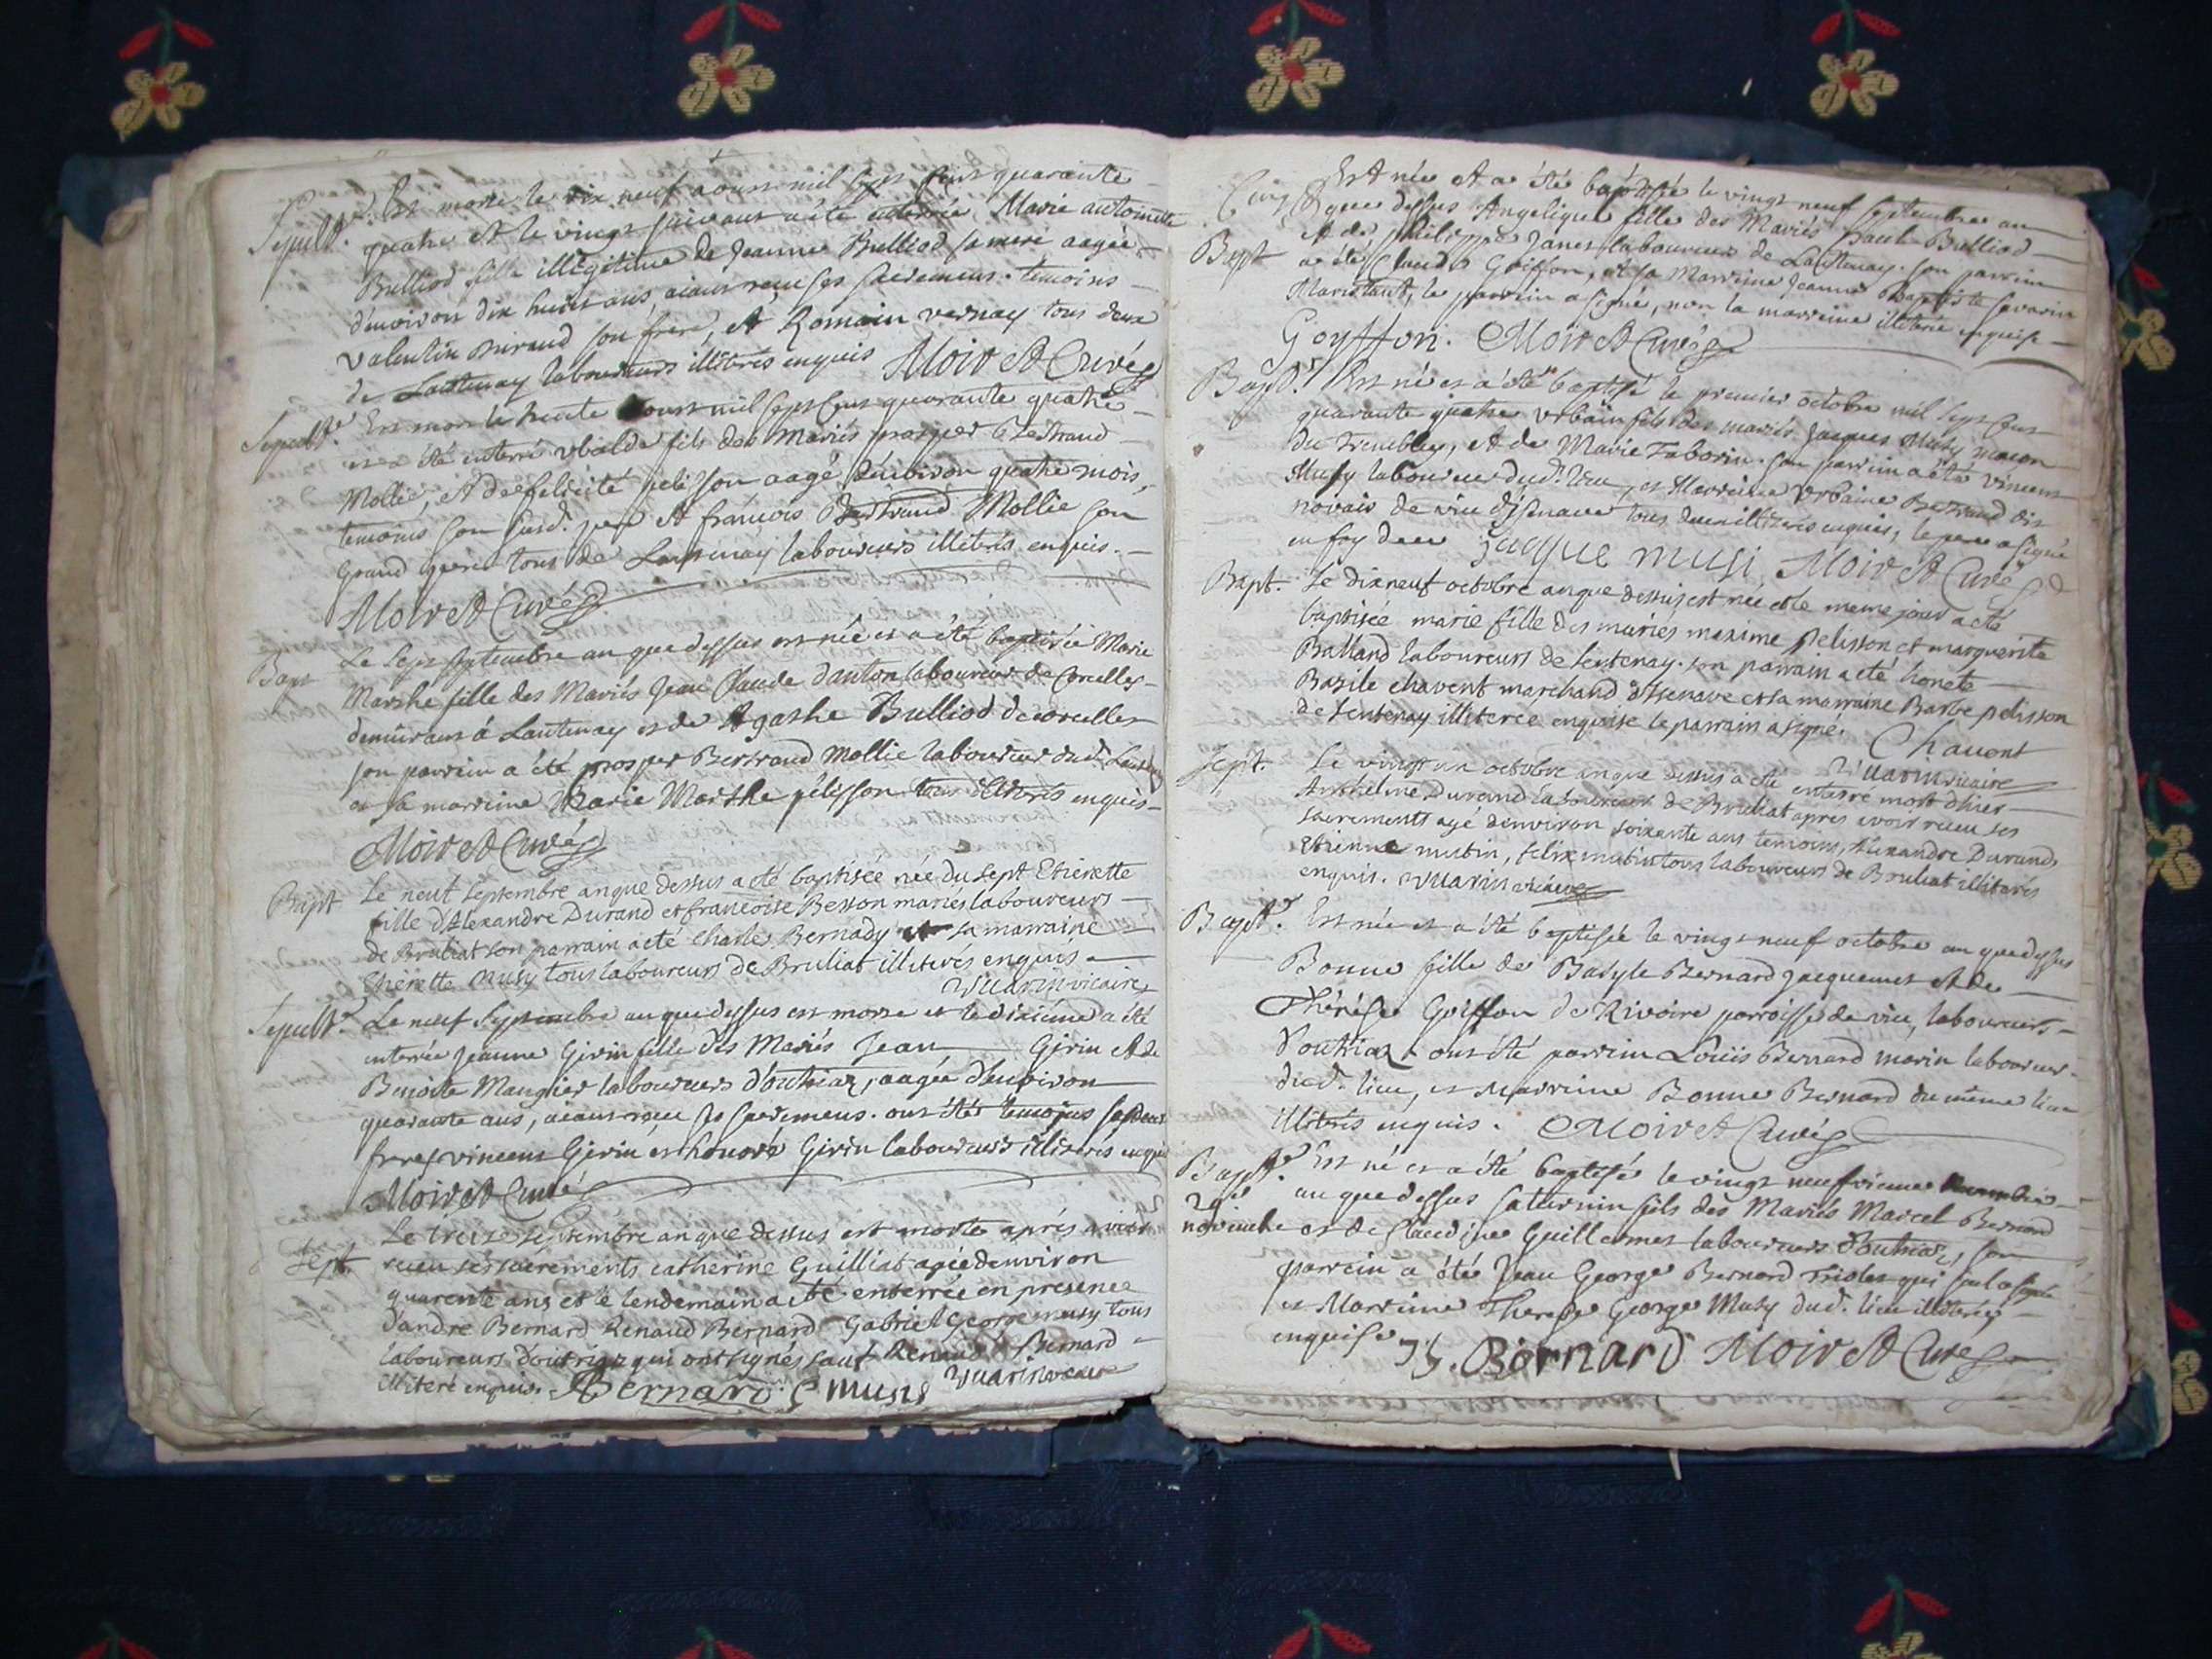 Sepult.r Est morte le dix neuf aoust mil sept cens quarante
quatre et le vingt suivant a été enterrée Marie antoinette
Bulliod fille illégitime de Jeanne Bulliod sa mere aagée
denviron dix huit ans aiant receu ses sacremens. temoins
valentin Buiraud son frere, et Romain vernay tous deux
de Lantenay laboureurs illiterés enquis Moiret Curé
Sepult.r Est mort le trente aoust mil sept cens quarante quatre
et a été enterré vbalde fils des Mariés prosper Bertrand
Mollie, et de felicité pelisson aagé denviron quatre mois,
temoins son susd. pere et francois Bertrand Mollie son
Grand pere tous de Lantenay laboureurs illiterés enquis.
Moiret Curé
Bapt Le sept septembre an que dessus est née et a été baptisée Marie
Marthe fille des Mariés Jean Claude danton laboureur de Corcelles
demeurant à Lantenay et de Agathe Bulliod de corcelles
son parrin a été prosper Bertrand Mollie laboureur dud. Lantenay
et sa marrine Marie Marthe pélisson tous illiterés enquis
Moiret Curé
Bapt Le neuf septembre an que dessus a eté baptisée née du sept Etienette
fille d'Alexandre Durand et francoise Besson mariés laboureurs
de Bruliat son parrain a eté charle Bernady et sa marraine
Etienette musy tous laboureurs de Bruliat illiterés enquis
Vuarin vicaire
Sepult.r Le neuf septembre an que dessus est morte et le dixième a été
enterrée Jeanne Girin fille des Mariés Jean Girin et de
Benoite Maugier laboureurs d'outriaz, aagée d'environ
quarante ans, aiant receu ses sacremens. ont été temoins ses deux
freres vincent Girin et honoré Girin laboureurs illiterés enquis
Moiret Curé
Sept. Le treize septembre an que dessus est morte aprés avoir
receu ses sacrements catherine Guilliat agée denviron
quarente ans et le lendemain a eté enterrée en presence
d'andre Bernard Renaud Bernard Gabriel George musy tous
laboureurs doutriaz qui ont signés sauf Renaud Bernard
illiteré enquis. ABernard. G musy Vuarin vicaire
Est née et a été baptisée le vingt neuf septembre an
que dessus Angelique fille des Mariés paul Bulliod
Bapt et de philippe Janet laboureurs de Lantenay. son parrin
a été Claude Goiffon, et sa Marrine Jeanne Baptiste savarin
le parrin a signé, non la marrine illiterée enquise
Goyffon. Moiret Curé
Bapt.r Est né et a été baptisé le premier octobre mil sept cens
quarante quatre vrbain fils des mariés Jacques Musy maçon
du Tremblay, et de Marie Taborin. son parrin a été vincent
Musy laboureur dud. lieu, et Marrine vrbaine Bertrand dit
novais de vieu d'jsenave tous deux illiterés enquis, le pere a signé
en foy de ce jaque musi Moiret Curé
Bapt. Le dixneuf octobre an que dessus est née et le meme jour a eté
baptisée marie fille des mariés maxime pelisson et marguerite
Balland laboureurs de Lentenay. son parrain a eté honete
Basile chavent marchand d'Issenave et sa marraine Barbe pelisson
de Lentenay illiterée enquise le parrain a signé.
Chavent
Vuarin vicaire
Sept. Le vingt un octobre an que dessus a eté enterré mort dhier
Anthelme Durand laboureur de Bruliat apres avoir receu ses
sacrements agé denviron soixante ans temoins, Alexandre Durand,
Etienne mutin, felix mutin tous laboureurs de Bruliat illiterés
enquis. Vuarin vicaire
Bapt.r Est née et a été baptisée le vingt neuf octobre an que dessus
Bonne fille de Basyle Bernard Jacquemet et de
Thérése Goiffon de Rivoire parroisse de vieu, laboureurs
d'outriaz. ont été parrin Loüis Bernard marin laboureur
dud. lieu, et Marrine Bonne Bernard du même lieu
illiterés enquis. Moiret Curé
Bapt.r Est né et a été baptisé le vingt neufvieme
29e an que dessus saturnin fils des Mariés Marcel Bernard
novembre et de Claudine Guillermet laboureurs d'outriaz, son
parrin a été Jean George Bernard Triolet qui seul a signé
et Marrine Therese George Musy dud. lieu illiterée
enquise JG. Bernard Moiret Curé